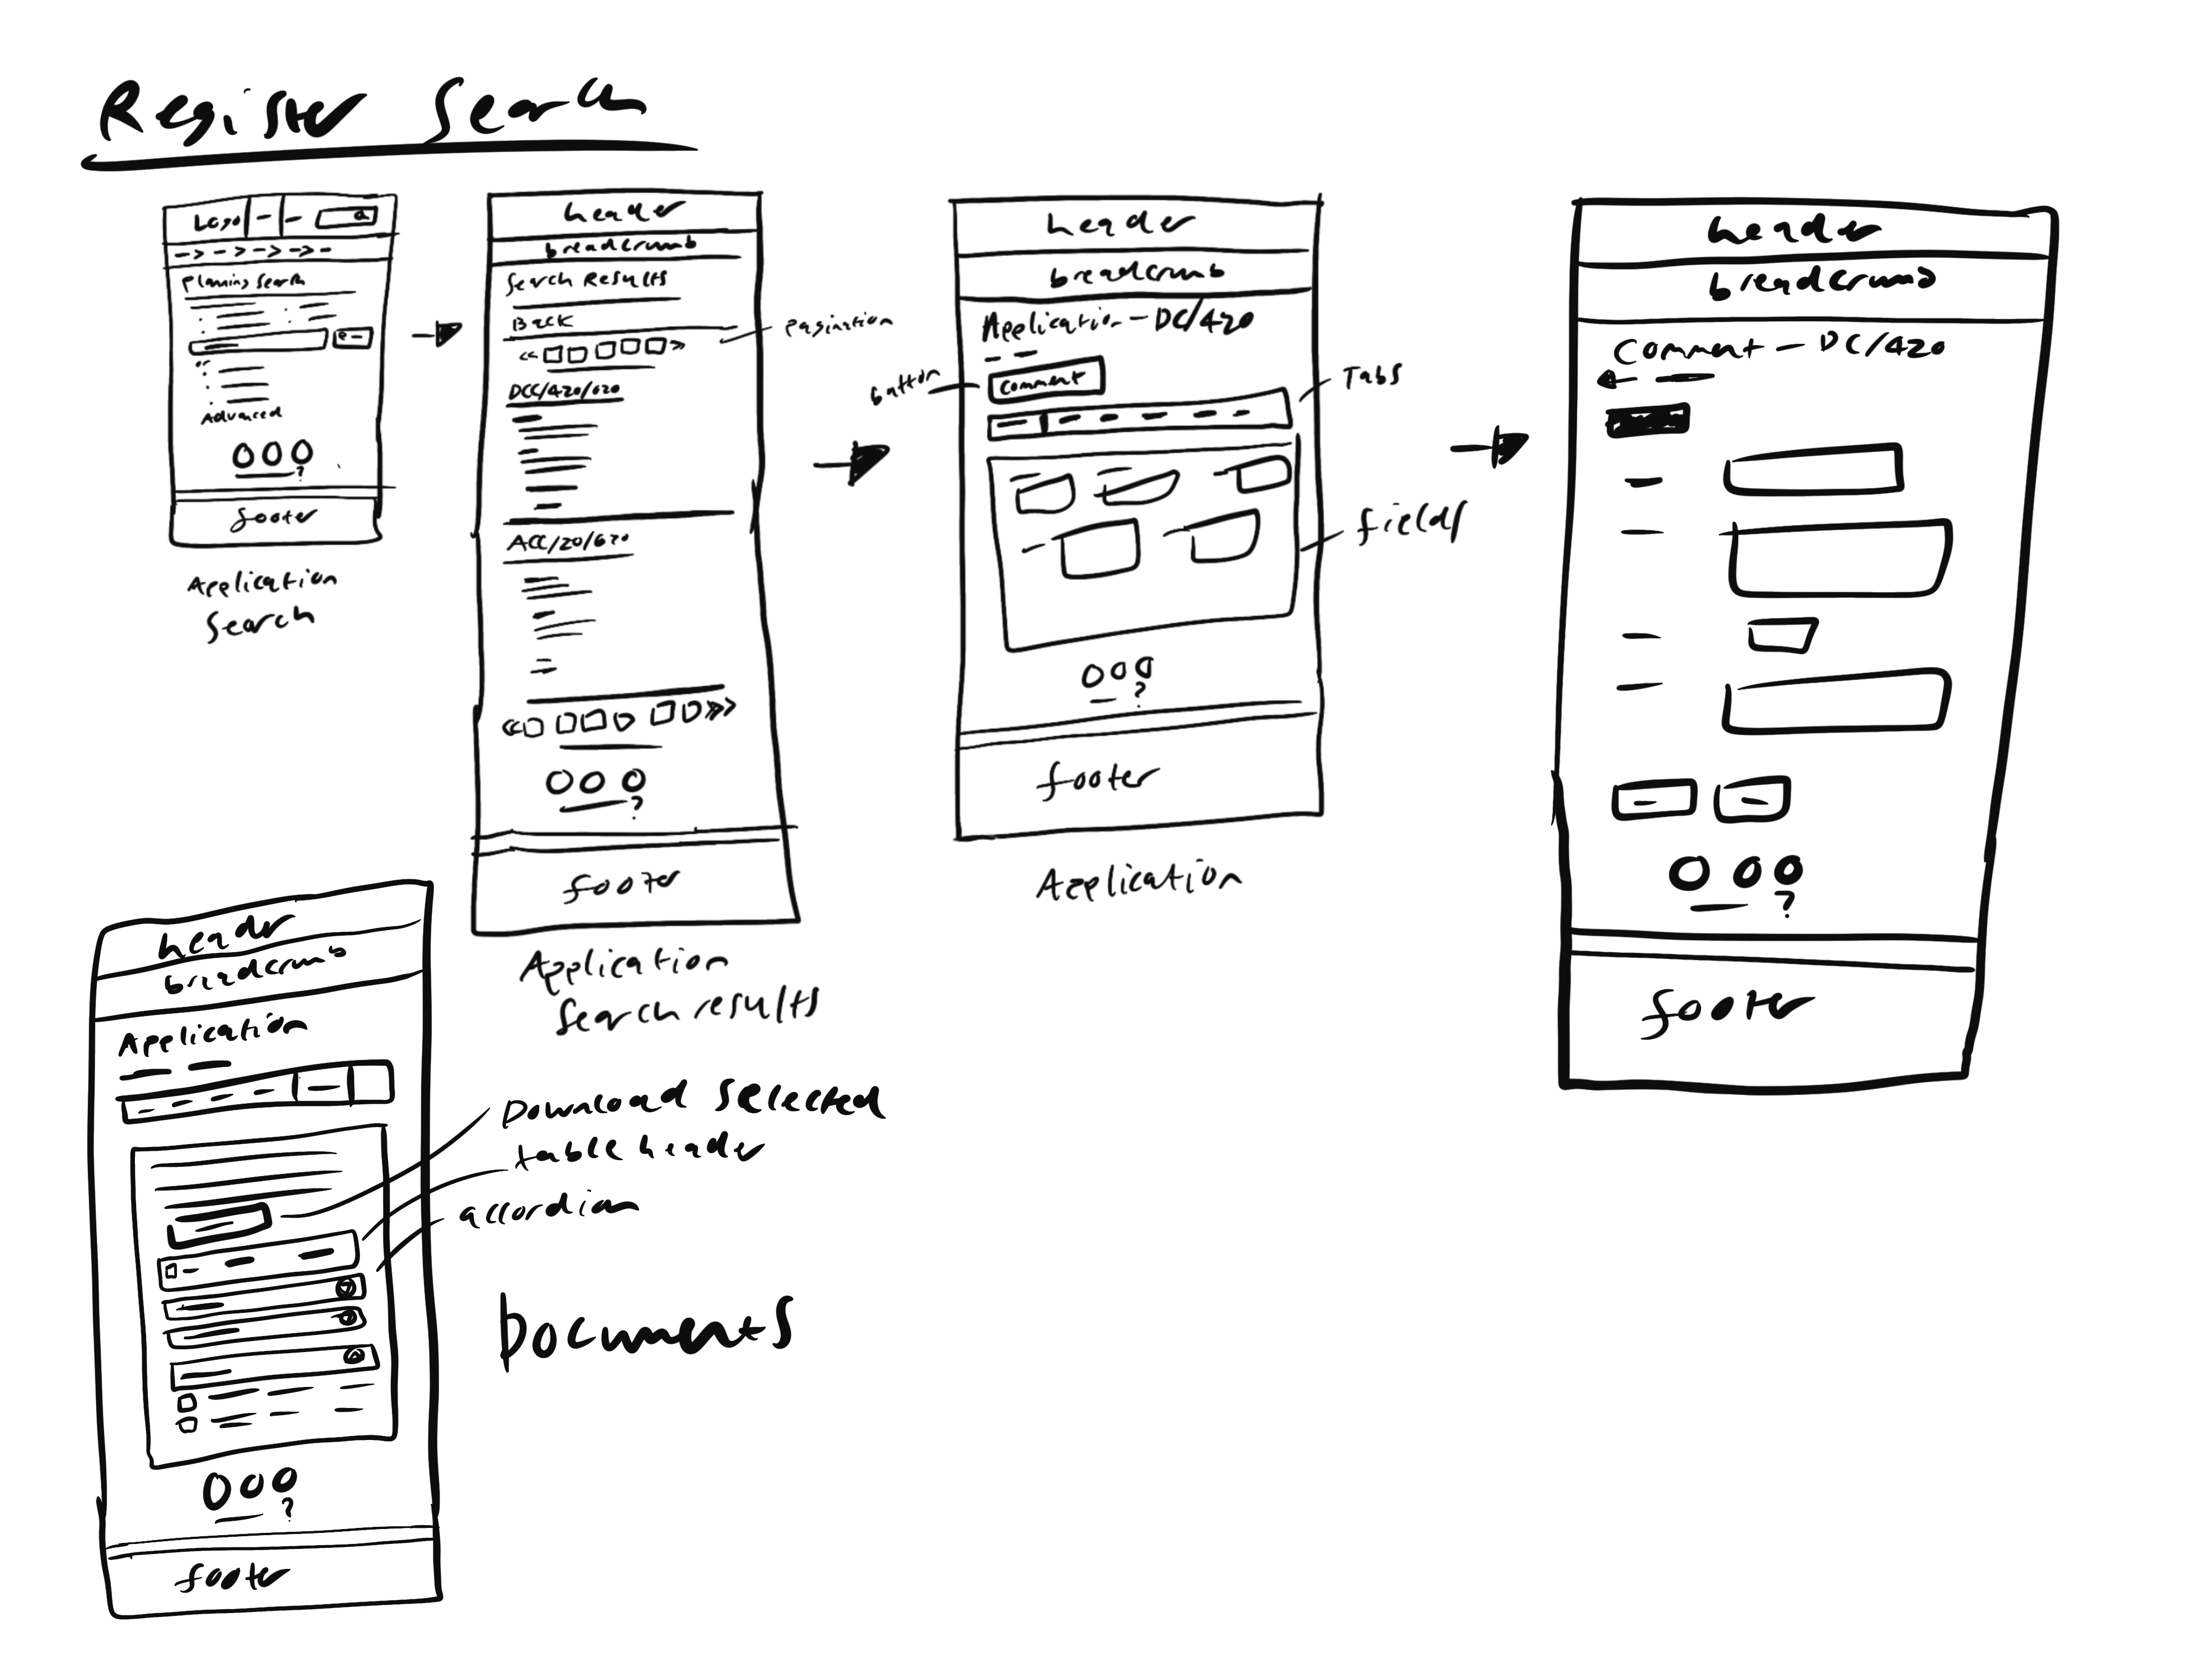 Register Search
Logo
Planning Search
Advanced
footer
Application
Search
header
breadcrumb
Search Results
Back
pagination
DCC/420/620
ACC/20/620
footer
Application
Search results
header
breadcrumb
Application - DC/420
button
comment
Tabs
fields
?
footer
Application
header
breadcrumb
Comment - DC/420
?
footer
header
breadcrumb
Application
Download selected
table header
accordian
Documents
?
footer